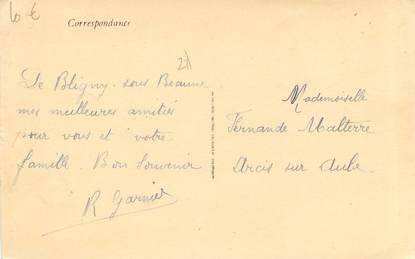 10 €
Correspondance
21
De Bligny-sous Beaune
mes meilleures amitiés
pour vous et votre
famille. Bon souvenir
R Garnier
Mademoiselle
Fernande Malterre
Arcis sur Aube.